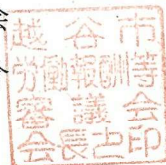 越谷市
労働報酬等
審議会
会長之印